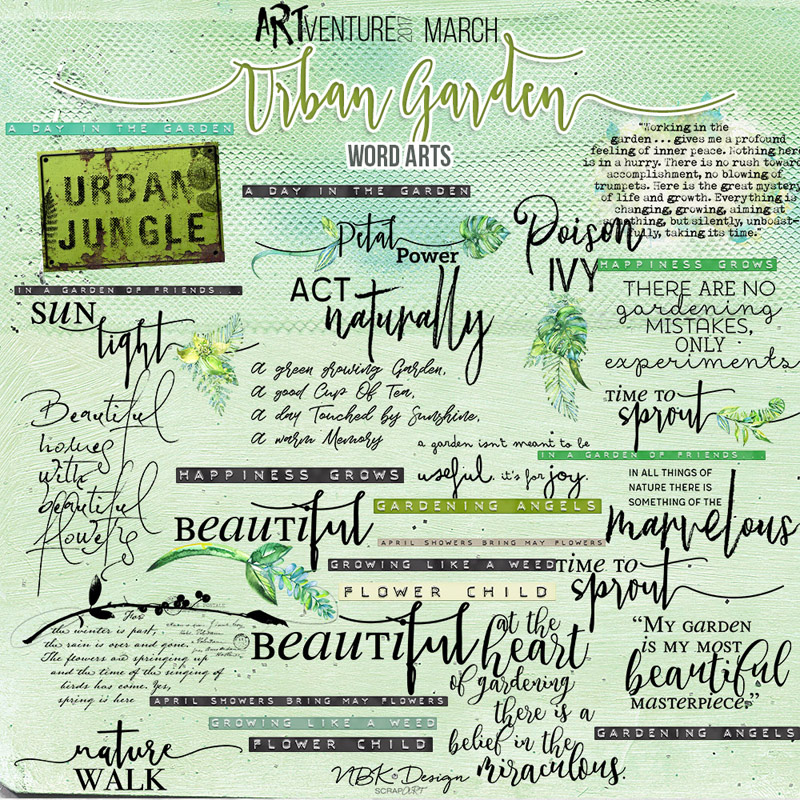 ARTVENTURE 2017 MARCH
Urban Garden
WORD ARTS
A DAY IN THE GARDEN
URBAN
JUNGLE
A DAY IN THE GARDEN
"Working in the
garden . . . gives me a profound
feeling of inner peace. Nothing here
is in a hurry. There is no rush toward
accomplishment, no blowing of
trumpets. Here is the great mystery
of life and growth. Everything is
changing, growing, aiming at
something, but silently, unboast-
fully, taking its time."
Petal
Power
Poison
IVY
HAPPINESS GROWS
IN A GARDEN OF FRIENDS...
SUN
light
ACT
naturally
THERE ARE NO
gardening
MISTAKES,
ONLY
experiments
a green growing Garden,
a good Cup Of Tea,
a day Touched by Sunshine,
a warm Memory
TIME TO
sprout
Beautiful
homes
with
beautiful
flowers
a garden isn't meant to be
useful. it's for joy.
IN A GARDEN OF FRIENDS...
HAPPINESS GROWS
IN ALL THINGS OF
NATURE THERE IS
SOMETHING OF THE
marvelous
GARDENING ANGELS
BEAUTIFUL
APRIL SHOWERS BRING MAY FLOWERS
GROWING LIKE A WEED
TIME TO
sprout
FLOWER CHILD
For
the winter is past,
the rain is over and gone.
The flowers are springing up
and the time of the singing of
birds has come. Yes,
spring is here
BEAUTIFUL
at the
heart
of gardening
there is a
belief in the
miraculous.
"MY GARDEN
IS MY MOST
beautiful
MASTERPIECE."
APRIL SHOWERS BRING MAY FLOWERS
GROWING LIKE A WEED
FLOWER CHILD
GARDENING ANGELS
nature
WALK
NBK Design
SCRAPART